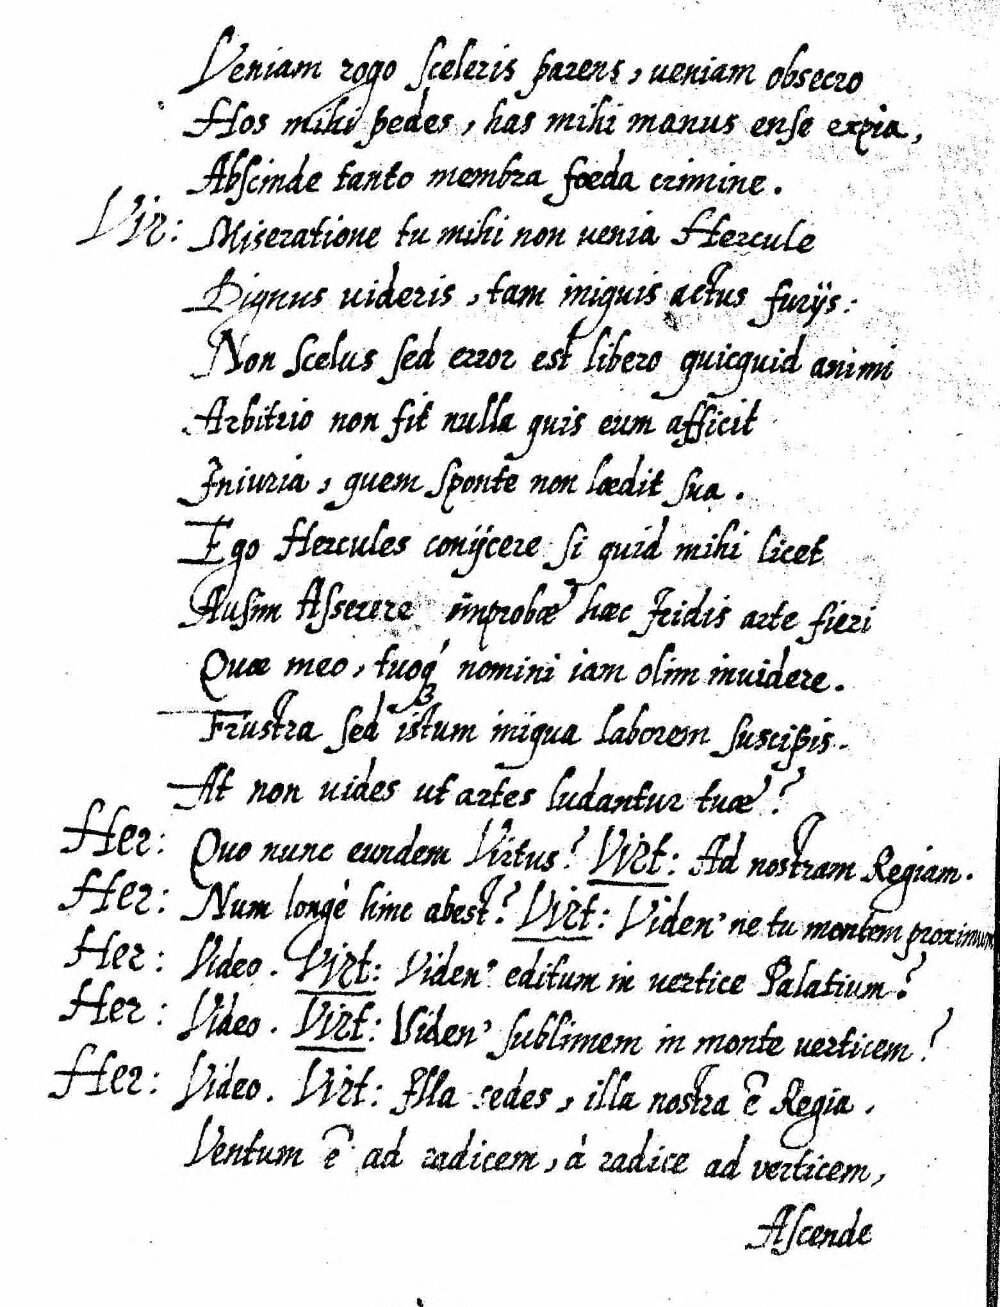 Veniam rogo sceleris parens, ueniam obsecro
Hos mihi pedes, has mihi manus ense expia,
Abscinde tanto membra fœda crimine.
Vir: Miseratione tu mihi non uenia Hercule
Dignus uideris, tam iniquis actus furijs:
Non scelus sed error est libero quicquid animi
Arbitrio non fit nulla quis eum afficit
Iniuria, quem sponte non lædit sua.
Ego Hercules conijcere si quid mihi licet
Ausim Asserere improbæ hæc Iridis arte fieri
Quæ meo, tuoq́ nomini iam olim inuidere.
Frustra sed istum iniqua laborem suscipis.
At non uides ut artes ludantur tuæ?
Her: Quo nunc eundem Virtus? Virt: Ad nostram Regiam.
Her: Num longè hinc abest? Virt: Viden' ne tu montem proximum
Her: Video. Virt: Viden' editum in vertice Palatium?
Her: Video. Virt: Viden' sublimem in monte uerticem?
Her: Video. Virt: Illa sedes, illa nostra ē Regia.
Ventum ē ad radicem, à radice ad verticem,
Ascende